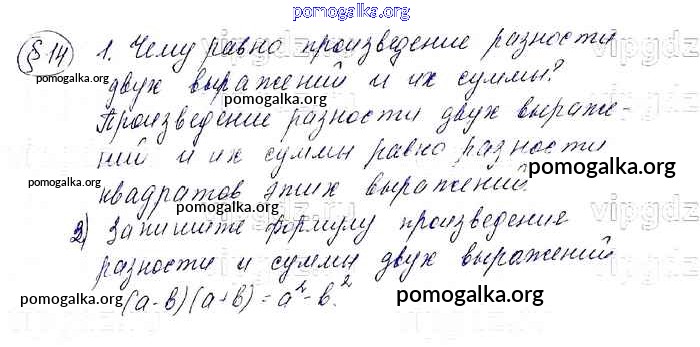 pomogalka.org
§14 1. Чему равно произведение разности
двух выражений и их суммы?
pomogalka.org
pomogalka.org
Произведение разности двух выраже-
ний и их суммы равно разности
pomogalka.org
pomogalka.org
квадратов этих выражений.
pomogalka.org
vipgdz
2) Запишите формулу произведения
разности и суммы двух выражений
pomogalka.org
pomogalka.org
(а-в)(а+в)=а²-в².